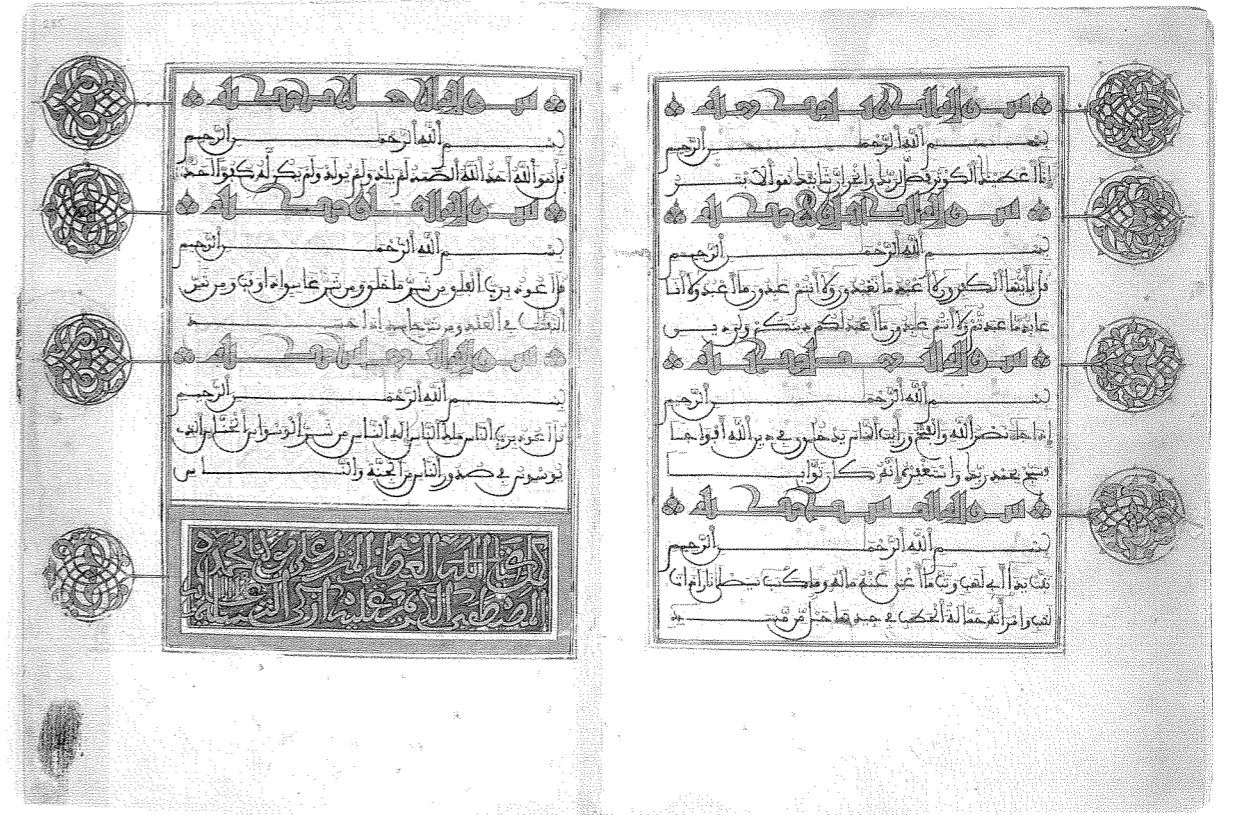 سورة الكوثر مكية
بسم الله الرحمن الرحيم
إنا أعطينك الكوثر فصل لربك وانحر إن شانئك هو الأبتر
سورة الكافرون مكية
بسم الله الرحمن الرحيم
قل يأيها الكفرون لا أعبد ما تعبدون ولا أنتم عبدون ما أعبد ولا أنا
عابد ما عبدتم ولا أنتم عبدون ما أعبد لكم دينكم ولي دين
سورة
بسم الله الرحمن الرحيم
إذا جاء نصر الله والفتح ورأيت الناس يدخلون في دين الله أفواجا
فسبح بحمد ربك واستغفره إنه كان توابا
سورة
بسم الله الرحمن الرحيم
تبت يدا أبي لهب وتب ما أغنى عنه ماله وما كسب سيصلى نارا ذات
لهب وامرأته حمالة الحطب في جيدها حبل من مسد
سورة الاخلاص مكية
بسم الله الرحمن الرحيم
قل هو الله أحد الله الصمد لم يلد ولم يولد ولم يكن له كفؤا أحد
سورة الفلق
بسم الله الرحمن الرحيم
قل أعوذ برب الفلق من شر ما خلق ومن شر غاسق إذا وقب ومن شر
النفثت في العقد ومن شر حاسد إذا حسد
سورة الناس
بسم الله الرحمن الرحيم
قل أعوذ برب الناس ملك الناس إله الناس من شر الوسواس الخناس الذي
يوسوس في صدور الناس من الجنة والناس
صدق الله العظيم المنزل على مولانا محمد
المصطفى الامين عليه ازكى التسليم